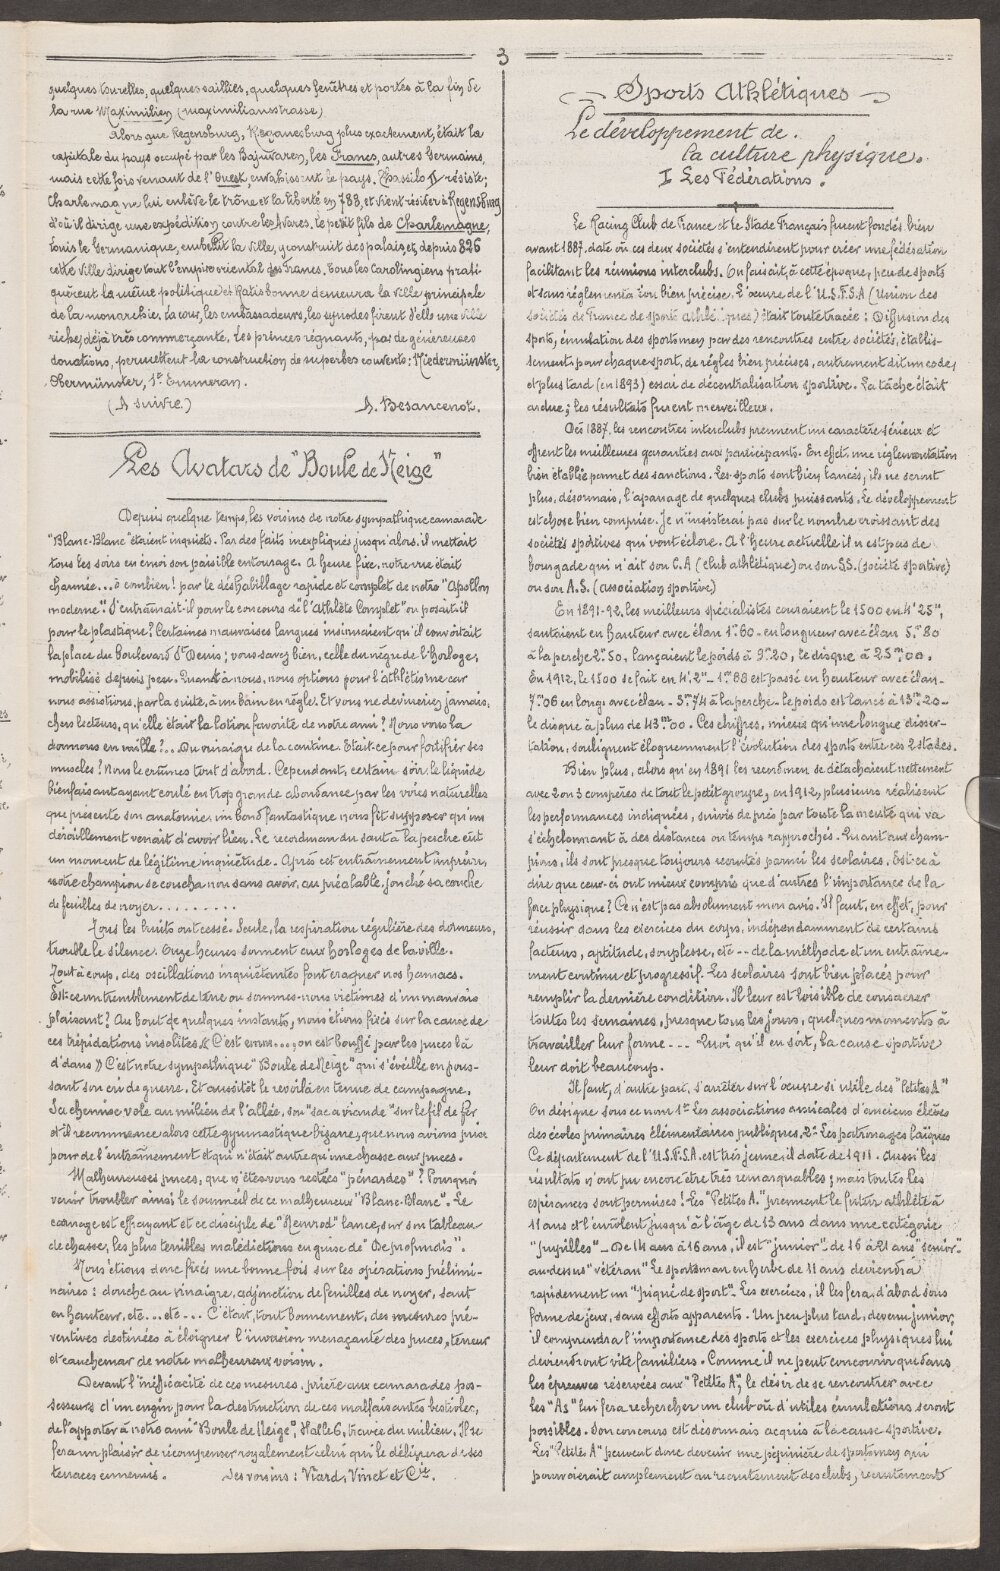 3
quelques tourelles, quelques saillies, quelques fenêtres et portes à la fin de
la rue Maximilien (maximilianstrasse)
Alors que Regensburg, Reganesburg plus exactement, était la
capitale du pays occupé par les Bajuvares, les Francs, autres Germains,
mais cette fois venant de l'Ouest, envahissent le pays. Thassilo II résiste;
Charlemagne lui enlève le trône et la liberté en 788, et vient résider à Regensburg
d'où il dirige une expédition contre les Avares. Le petit fils de Charlemagne,
Louis le Germanique, embellit la ville, y construit des palais et, depuis 826
cette ville dirige tout l'empire oriental des Francs. Tous les Carolingiens prati
quèrent la même politique et Ratisbonne demeura la ville principale
de la monarchie. La cour, les ambassadeurs, les synodes firent d'elle une ville
riche, déjà très commerçante. Les princes régnants, par de généreuses
donations, permettent la construction de superbes couvents: Niedermünster,
Obermünster, St Emmeran.
(A suivre) A. Besancenot.
Les Avatars de "Boule de Neige"
Depuis quelque temps, les voisins de notre sympathique camarade
"Blanc-Blanc" étaient inquiets. Par des faits inexpliqués jusqu'alors, il mettait
tous les soirs en émoi son paisible entourage. A heure fixe, notre vue était
charmée... ô combien! par le déshabillage rapide et complet de notre "Apollon
moderne". S'entraînait-il pour le concours de l'"Athlète Complet" ou posait-il
pour le plastique? Certaines mauvaises langues insinuaient qu'il convoitait
la place du boulevard St Denis; vous savez bien, celle du nègre de l'horloge,
mobilisé depuis peu. Quant à nous, nous options pour l'athlétisme car
nous assistions, par la suite, à un bain en règle. Et vous ne devineriez jamais,
chers lecteurs, qu'elle était la lotion favorite de notre ami? Nous vous la
donnons en mille?.. Du vinaigre de la cantine. Etait-ce pour fortifier ses
muscles? Nous le crûmes tout d'abord. Cependant, certain soir le liquide
bienfaisant ayant coulé en trop grande abondance par les voies naturelles
que présente son anatomie, un bond fantastique nous fit supposer qu'un
déraillement venait d'avoir lieu. Le recordman du saut à la perche eût
un moment de légitime inquiétude. Après cet entraînement imprévu,
notre champion se coucha non sans avoir, au préalable, jonché sa couche
de feuilles de noyer.........
Tous les bruits ont cessé. Seule, la respiration régulière des dormeurs,
trouble le silence. Onze heures sonnent aux horloges de la ville.
Tout à coup, des oscillations inquiétantes font craquer nos hamacs.
Est-ce un tremblement de terre ou sommes-nous victimes d'un mauvais
plaisant? Au bout de quelques instants, nous étions fixés sur la cause de
ces trépidations insolites. "C'est emm..., on est bouffé par les puces là
d'dans" C'est notre sympathique "Boule de Neige" qui s'éveille en pous-
sant son cri de guerre. Et aussitôt le revoilà en tenue de campagne.
Sa chemise vole au milieu de l'allée, son "sac à viande" sur le fil de fer
et il recommence alors cette gymnastique bizarre, que nous avions prise
pour de l'entraînement et qui n'était autre qu'une chasse aux puces.
Malheureuses puces, que n'êtes-vous restées "pénardes"? Pourquoi
venir troubler ainsi le sommeil de ce malheureux "Blanc-Blanc". Le
carnage est effrayant et ce disciple de "Nemrod" lance, sur son tableau
de chasse, les plus terribles malédictions en guise de "De profundis".
Nous étions donc fixés une bonne fois sur les opérations prélimi-
naires: douche au vinaigre, adjonction de feuilles de noyer, saut
en hauteur, etc...etc... C'était, tout bonnement, des mesures pré-
ventives destinées à éloigner l'invasion menaçante des puces, terreur
et cauchemar de notre malheureux voisin.
Devant l'inéfficacité de ces mesures, prière aux camarades pos-
sesseurs d'un engin, pour la destruction de ces malfaisantes bestioles,
de l'apporter à notre ami "Boule de Neige", Halle 6, travée du milieu. Il se
fera un plaisir de récompenser royalement celui qui le délivrera de ses
tenaces ennemis. Ses voisins: Viard, Vinet et Cie.
Sports Athlétiques
Le développement de
la culture physique.
I Les Fédérations.
Le Racing Club de France et le Stade Français furent fondés bien
avant 1887, date où ces deux sociétés s'entendirent pour créer une fédération
facilitant les réunions interclubs. On faisait, à cette époque, peu de sports
et sans réglementation bien précise. L'œuvre de l'U.S.F.S.A (Union des
sociétés de France de sports athlétiques) était toute tracée: Diffusion des
sports, émulation des sportsmen par des rencontres entre sociétés, établis-
sement, pour chaque sport, de règles bien précises, autrement dit un code,
et plus tard (en 1893) essai de décentralisation sportive. La tâche était
ardue; les résultats furent merveilleux.
Dès 1887, les rencontres interclubs prennent un caractère sérieux et
offrent les meilleures garanties aux participants. En effet, une réglementation
bien établie permet des sanctions. Les sports sont bien lancés, ils ne seront
plus, désormais, l'apanage de quelques clubs puissants. Le développement
est chose bien comprise. Je n'insisterai pas sur le nombre croissant des
sociétés sportives qui vont éclore. A l'heure actuelle il n'est pas de
bourgade qui n'ait son C.A (club athlétique) ou son S.S. (société sportive)
ou son A.S. (association sportive)
En 1891-92, les meilleurs spécialistes couraient le 1500 en 4'25",
sautaient en hauteur avec élan 1m60 - en longueur avec élan 5m80
à la perche 2m50, lançaient le poids à 9m20, le disque à 25m00.
En 1912, le 1500 se fait en 4'2" - 1m88 est passé en hauteur avec élan -
7m06 en long avec élan - 3m74 à la perche - le poids est lancé à 13m20 -
le disque à plus de 43m00. Ces chiffres, mieux qu'une longue disser-
tation, soulignent éloquemment l'évolution des sports entre ces 2 stades.
Bien plus, alors qu'en 1891 les recordmen se détachaient nettement
avec 2 ou 3 compères de tout le petit groupe, en 1912, plusieurs réalisent
les performances indiquées, suivis de près par toute la meute qui va
s'échelonnant à des distances ou temps rapprochés. Quant aux cham-
pions, ils sont presque toujours recrutés parmi les scolaires. Est-ce à
dire que ceux-ci ont mieux compris que d'autres l'importance de la
force physique? Ce n'est pas absolument mon avis. Il faut, en effet, pour
réussir dans les exercices du corps, indépendamment de certains
facteurs, aptitude, souplesse, etc -- de la méthode et un entraîne-
ment continu et progressif. Les scolaires sont bien placés pour
remplir la dernière condition. Il leur est loisible de consacrer
toutes les semaines, presque tous les jours, quelques moments à
travailler leur forme --- Quoi qu'il en soit, la cause sportive
leur doit beaucoup.
Il faut, d'autre part, s'arrêter sur l'œuvre si utile des "Petites A."
On désigne sous ce nom 1° Les associations amicales d'anciens élèves
des écoles primaires élémentaires publiques, 2° Les patronages laïques
Ce département de l'U.S.F.S.A. est très jeune, il date de 1911. Aussi les
résultats n'ont pu encore être très remarquables; mais toutes les
espérances sont permises! Les "Petites A." prennent le futur athlète à
11 ans et l'enrôlent jusqu'à l'âge de 13 ans dans une catégorie
"pupilles" - De 14 ans à 16 ans, il est "junior" - de 16 à 21 ans "senior" -
au-dessus "vétéran" Le sportsman en herbe de 11 ans deviendra
rapidement un "piqué de sport". Les exercices, il les fera, d'abord sous
forme de jeux, sans efforts apparents. Un peu plus tard, devenu junior,
il comprendra l'importance des sports et les exercices physiques lui
deviendront vite familiers. Comme il ne peut concourir que dans
les épreuves réservées aux "Petites A", le désir de se rencontrer avec
les "As" lui fera rechercher un club où d'utiles émulations seront
possibles. Son concours est désormais acquis à la cause sportive.
Les "Petites A" peuvent donc devenir une pépinière de sportsmen qui
pourvoierait amplement au recrutement des clubs, recrutement